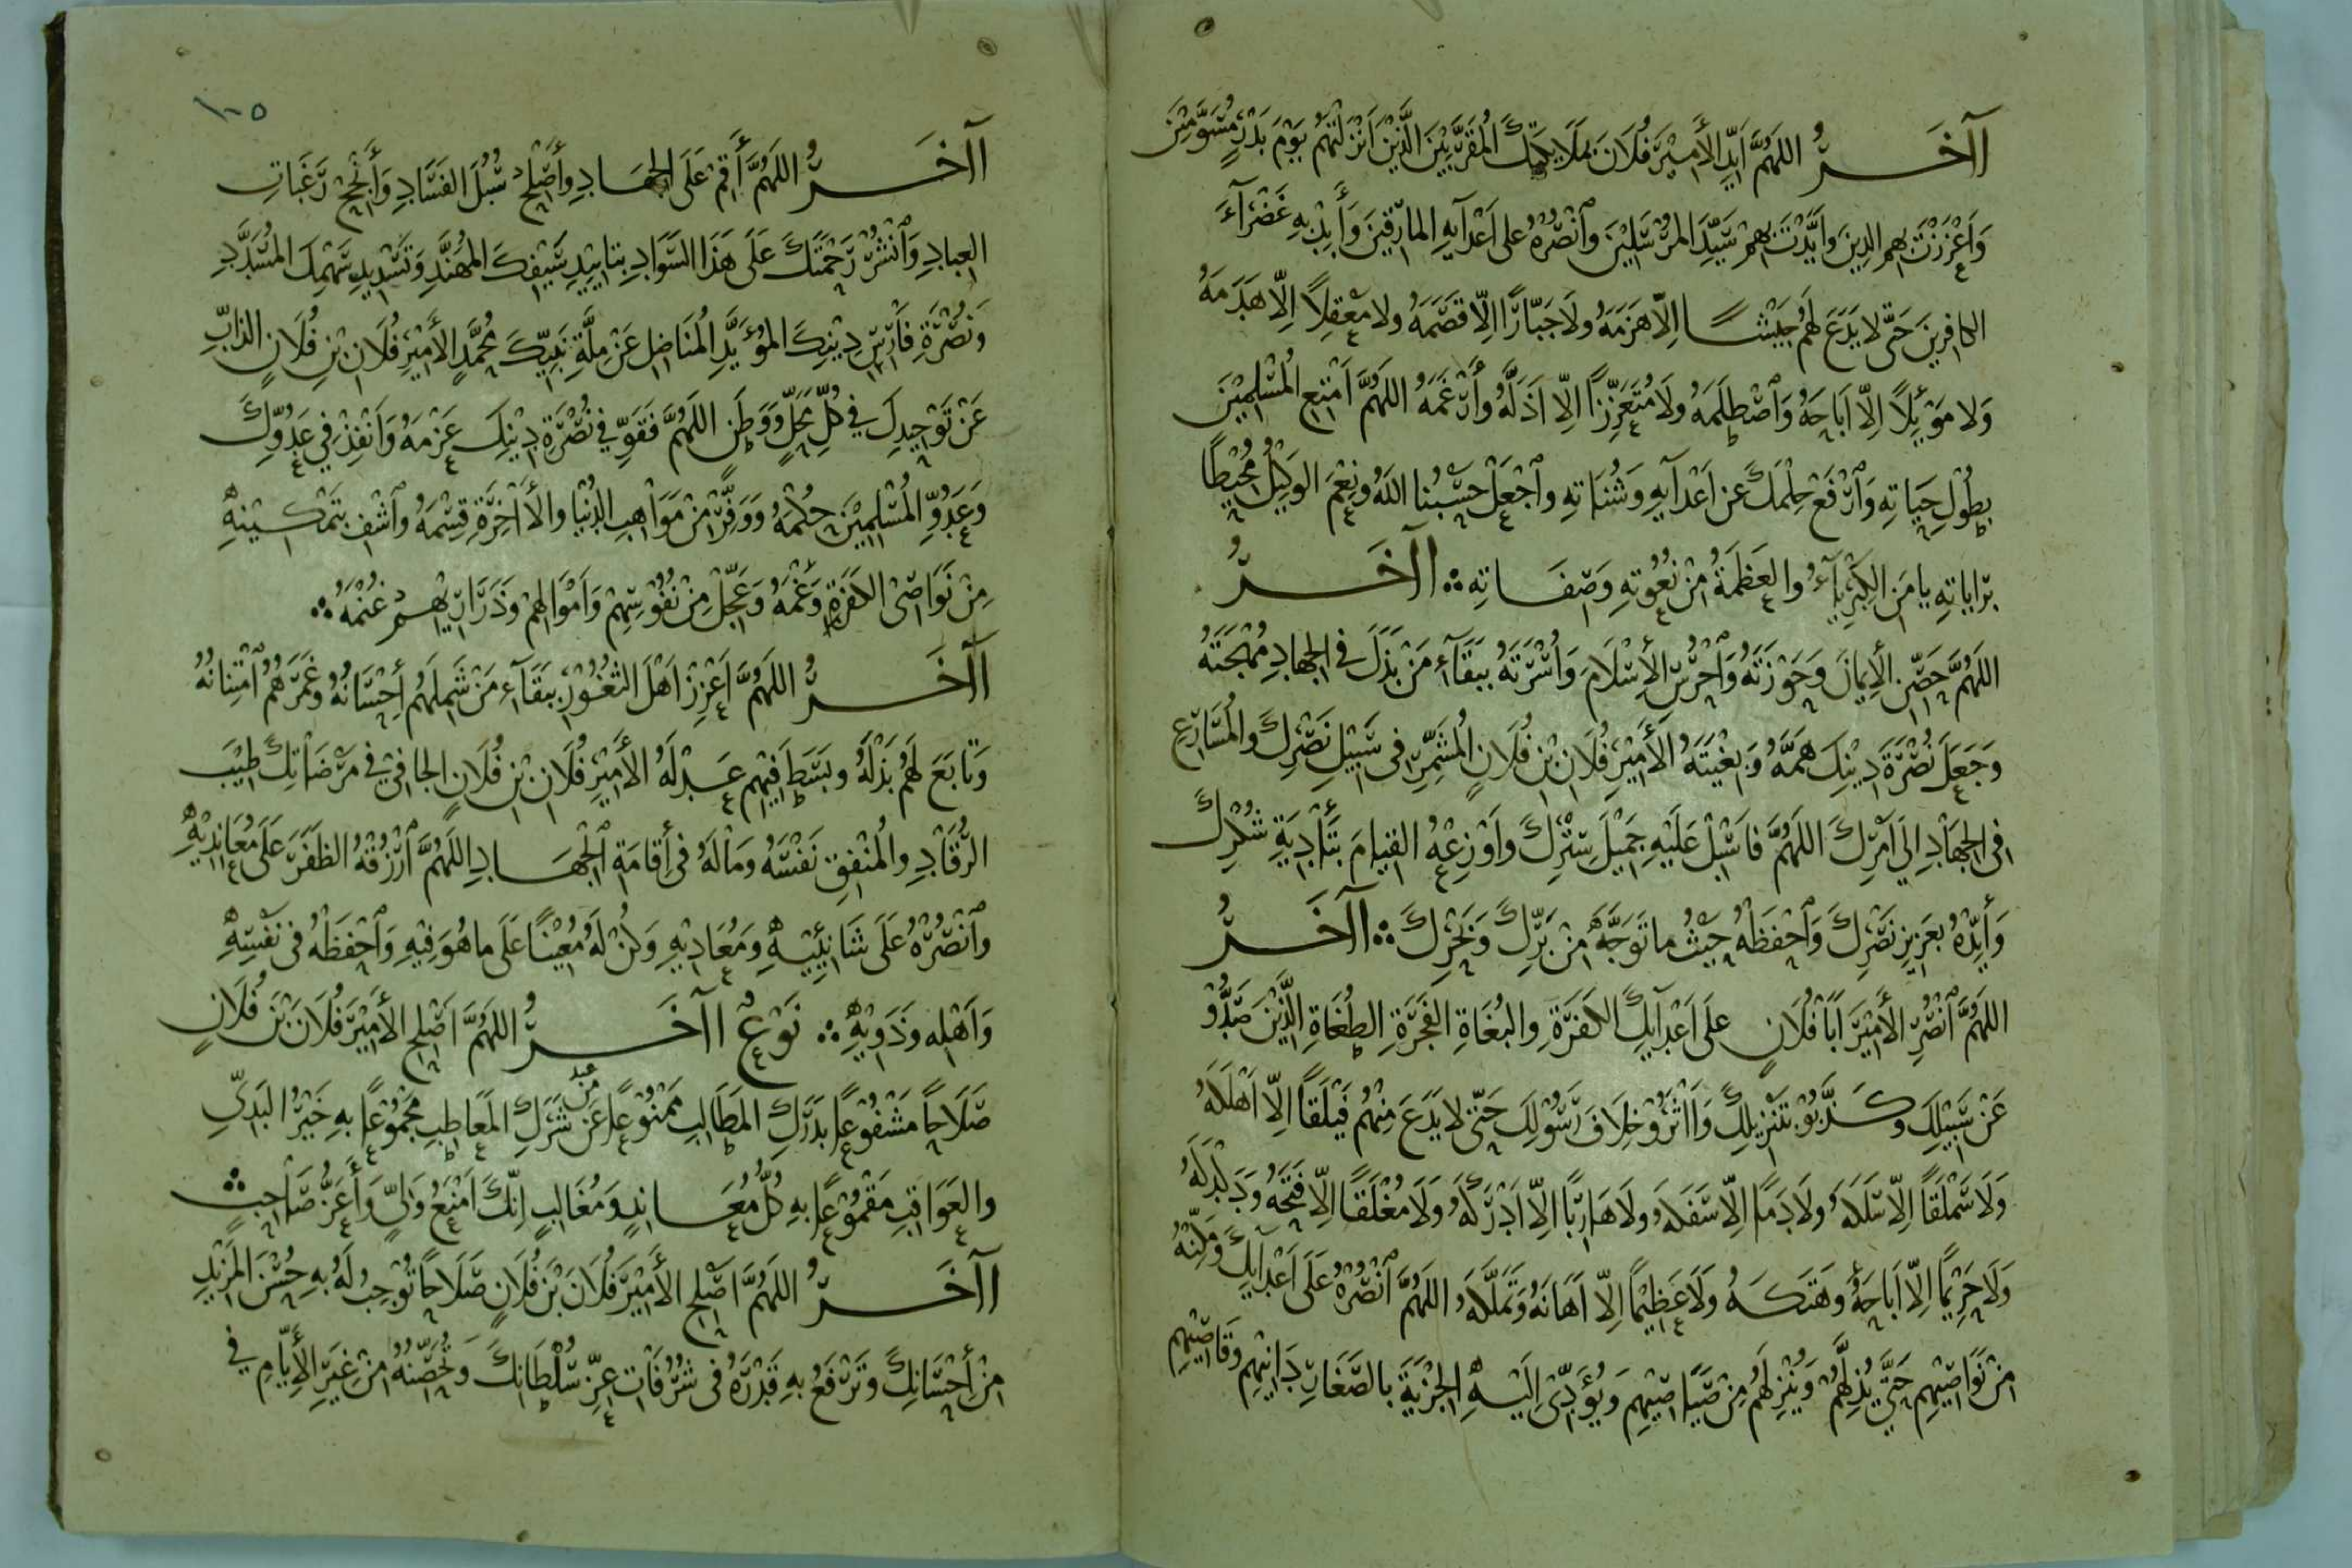 اآخَرُ اللهُمَّ اَيِّدِ الأَمِيْرَ فُلَانَ بمَلَايِكَتِكَ المُقَرَّبِيْنَ الَّذِيْنَ اَنْزَلْتَهُمْ يَوْمَ بَدْرٍ مُسَوَّمِيْنَ
وَاَعْزَزْتَ بِهِم الدِينَ وايَّدْتَ بِهِمْ سَيِّدَ المُرْسَلِيْنَ وٱنْصُرْهُ على اَعْدَآيِهِ المارِقِينَ وَأَبِدْ بِهِ غَضْرَآءَ
الكافِرِينَ حَتَّى لا يَدَعَ لَهُم جَيْشًا اِلّا هَزَمَهُ ولَا جَبّارًا اِلّا قَصَمَهُ ولا مَعْقِلاً اِلّا هَدَمَهُ
وَلا مَوْئِلاً اِلّا اَبَاحَهُ وَٱصْطَلَمَهُ ولَا مُتَعَزِّزًا اِلّا اَذَلَّهُ وأَرْغَمَهُ اللهُمَّ اَمْتِعِ المُسْلِمِيْنَ
بِطُوْلِ حَيَاتِهِ وَٱرْفَعْ حِلْمَكَ عن اَعْدَآيِهِ وَشُنَاتِهِ وٱجْعَلْ حَسْبُنا اللهُ ونِعْمَ الوَكِيْلُ مُحِيْطًا
بِرَاياتِهِ يا مَنِ الكِبْرِيَآءُ والعَظَمَةُ مِنْ نُعُوْتِهِ وَصِفَاتِهِ ∴ اآخَرُ
اللهُمَّ حَصِّنِ الأِيمَانَ وَحَوْزَتَهُ وَٱحْرُسِ الأِسْلَامَ وَأُسْرَتَهُ بِبَقَآءِ مَنْ بَذَلَ فى الجِهادِ مُهْجَتَهُ
وَجَعَلَ نُصْرَةَ دِيْنِكَ هَمَّهُ وَبُغْيَتَهُ الأَمِيْرِ فُلَانِ بْنِ فُلَانٍ المُشَمِّرِ فى سَبِيْلِ نَصْرِكَ والمُسَارِعِ
فى الجِهَادِ اِلَى اَمْرِكَ اللهُمَّ فاَسْبِلْ عَلَيْهِ جَمِيْلَ سِتْرِكَ وَاَوْزِعْهُ القِيامَ بِتَأْدِيَةِ شُكْرِكَ
وَأَيِّدْهُ بِعَزِيزِ نَصْرِكَ وَٱحْفَظْهُ حَيْثُ ما تَوَجَّهَ مِنْ بَرِّكَ وَبَحْرِكَ ∴ اآخَرُ
اللهُمَّ ٱنْصُرِ الأَمِيْرَ اَبَا فُلَانٍ على اَعْدَآيِكَ الكَفَرَةِ والبُغَاةِ الفَجَرَةِ الطُغَاةِ الَّذِيْنَ صَدُّوْ
عَنْ سَبِيْلِكَ وكَذَّبُوْ بتَنْزِيلِكَ وَاٰثَرُوْ خِلَافَ رَسُوْلِكَ حَتّى لا يَدَعَ مِنْهُم فَيْلَقًا اِلّا اَهْلَكَهُ
وَلَا سَمْلَقًا اِلّا سَلَكَهُ ولَا دَمًا اِلّا سَفَكَهُ ولَا هَارِبًا اِلّا اَدْرَكَهُ وَلَا مُغْلَقًا اِلّا فَتَحَهُ وَدَكْدَكَهُ
وَلَا حَرِيْمًا اِلّا اَبَاحَهُ وهَتَكَهُ وَلَا عَظِيْمًا اِلّا اَهَانَهُ وتَمَلَّكَهُ اللهُمَّ ٱنْصُرْهُ عَلَى اَعْدَآيِكَ وَمَكِّنْهُ
مِنْ نَوَاصِيْهِم حَتَّى يُذِلَّهُمْ وَيُنْزِلَهُم مِنْ صَيَاصِيْهِم وَيُؤَدِّىَ اِلَيْهِ الجِزْيَةَ بالصَّغَارِ دَانِيْهِم وَقَاصِيْهِم
١٠٥
اآخَرُ اللهُمَّ أَقِمْ عَلَى الجِهَادِ وأَصْلِحْ سُبُلَ الفَسَادِ وَأَنْجِحْ رَغَبَاتِ
العِبادِ وَٱنْشُرْ رَحْمَتَكَ عَلَى هَذَا السَّوَادِ بتايِيْدِ سَيْفِكَ المُهَنَّدِ وَتَسْدِيدِ سَهْمِكَ المُسَدَّدِ
وَنُصْرَةِ فَارِسِ دِيْنِكَ المُؤَيَّدِ المُنَاضِلِ عَنْ مِلَّةِ نَبِيِّكَ مُحَمَّدٍ الأَمِيْرِ فُلَانِ بْنِ فُلَانٍ الذابِّ
عَنْ تَوْحِيدِكَ فى كُلِّ مَحَلٍّ وَوَطَنٍ اللهُمَّ فَقَوِّ فى نُصْرَةِ دِيْنِكَ عَزْمَهُ وَاَنْفِذْ فى عَدُوِّكَ
وَعَدُوِّ المُسْلِمِيْنَ حُكْمَهُ وَوَفِّرْ مِنْ مَوَاهِبِ الدُنْيا والأَاخِرَةِ قِسْمَهُ وٱشْفِ بتَمْكِيْنِهِ
مِنْ نَوَاصِى الكَفَرَةِ وَغْمَهُ وَعَجِّلْ مِنْ نُفُوْسِهِمْ وَاَمْوَالِهِمْ وَذَرَارِيْهِمْ غُنْمَهُ ∴
اآخَرُ اللهُمَّ اَعْزِزْ اَهْلَ الثغُوْرِ بِبَقَآءِ مَنْ شَمِلَهُمْ أِحْسَانُهُ وغَمَرَهُمُ ٱمْتِنانُهُ
وَتَابَعَ لَهُمْ بَذْلَهُ وبَسَطَ فِيْهِم عَدْلَهُ الأَمِيْرِ فُلَانِ بْنِ فُلَانٍ الجافى فى مَرْضَاتِكَ طِيْبَ
الرُّقَادِ والمُنْفِقِ نَفْسَهُ ومَالَهُ فى أِقامَةِ ٱلْجِهَادِ اللهُمَّ ٱرْزُقْهُ الظَفَرَ عَلَى مُعَانِدِيْهِ
وٱنْصُرْهُ عَلَى شَنَائِيْهِ وَمُعَادِيْهِ وَكُنْ لَهُ مُعِيْنًا عَلَى ما هُوَ فِيْهِ وَٱحْفَظْهُ فى نَفْسِهِ
وَاَهْلِهِ وذَوِيْهِ ∴ نَوْعٌ اآخَرُ اللهُمَّ اَصْلِحِ الأَمِيْرَ فُلَانَ بْنَ فُلَانٍ
صَلَاحًا مَشْفُوْعًا بدَرَكِ المَطَالِبِ مَمْنُوْعًا عَنْ شَرَكِ المَعَاطِبِ مَجْمُوْعًا بهِ خَيْرُ البَدَىِّ
والعَوَاقِبِ مَقْمُوْعًا بهِ كُلُّ مُعَانِدٍ وَمُغَالِبٍ اِنَّكَ اَمْنَعُ وَلِىٍّ وَأَعَزُّ صَاحِبٍ ∴
اآخَرُ اللهُمَّ اَصْلِحِ الأَمِيْرَ فُلَانَ بْنَ فُلَانٍ صَلَاحًا تُوْجِبُ لَهُ بهِ حُسْنَ المَزِيْدِ
مِنْ أِحْسَانِكَ وتَرْفَعُ بهِ قَدْرَهُ فى شُرُفَاتِ عِزِّ سُلْطَانِكَ وَتُحَصِّنُهُ مِنْ غِيَرِ الأَيّامِ فى